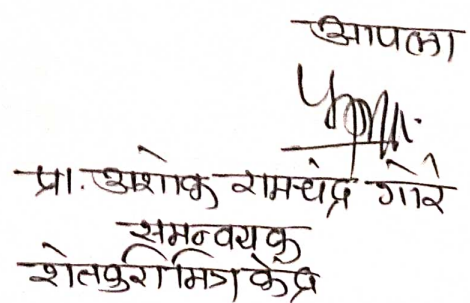 आपला
प्रा. अशोक रामचंद्र गोरे
समन्वयक
शेतकरी मित्र केंद्र